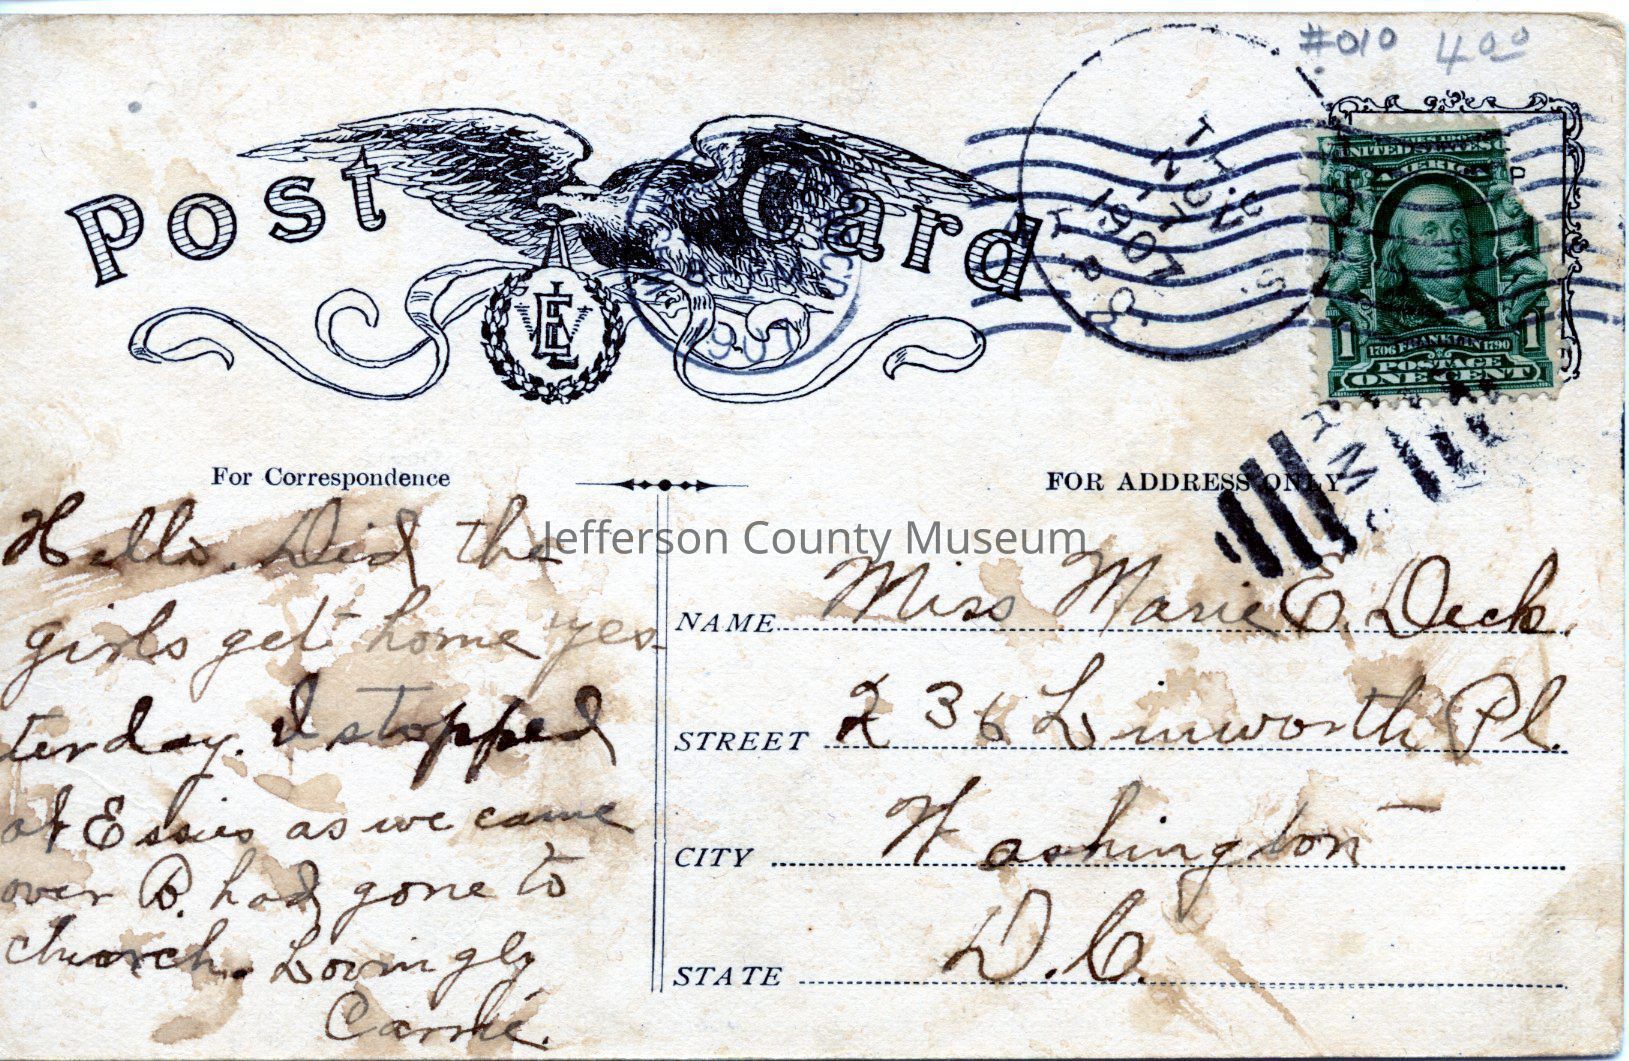 #010 4 00
Post Card
UNITED STATES
AMERICA
1 1706 FRANKLIN 1790 1
POSTAGE
ONE CENT
1907
1907
REC'D
For Correspondence
FOR ADDRESS ONLY
Jefferson County Museum
Hello. Did the
girls get home yes-
terday. I stopped
at Essies as we came
over B. had gone to
church. Lovingly
Carrie.
NAME Miss Marie E. Deck.
STREET 236 Linworth Pl.
CITY Washington
STATE D.C.